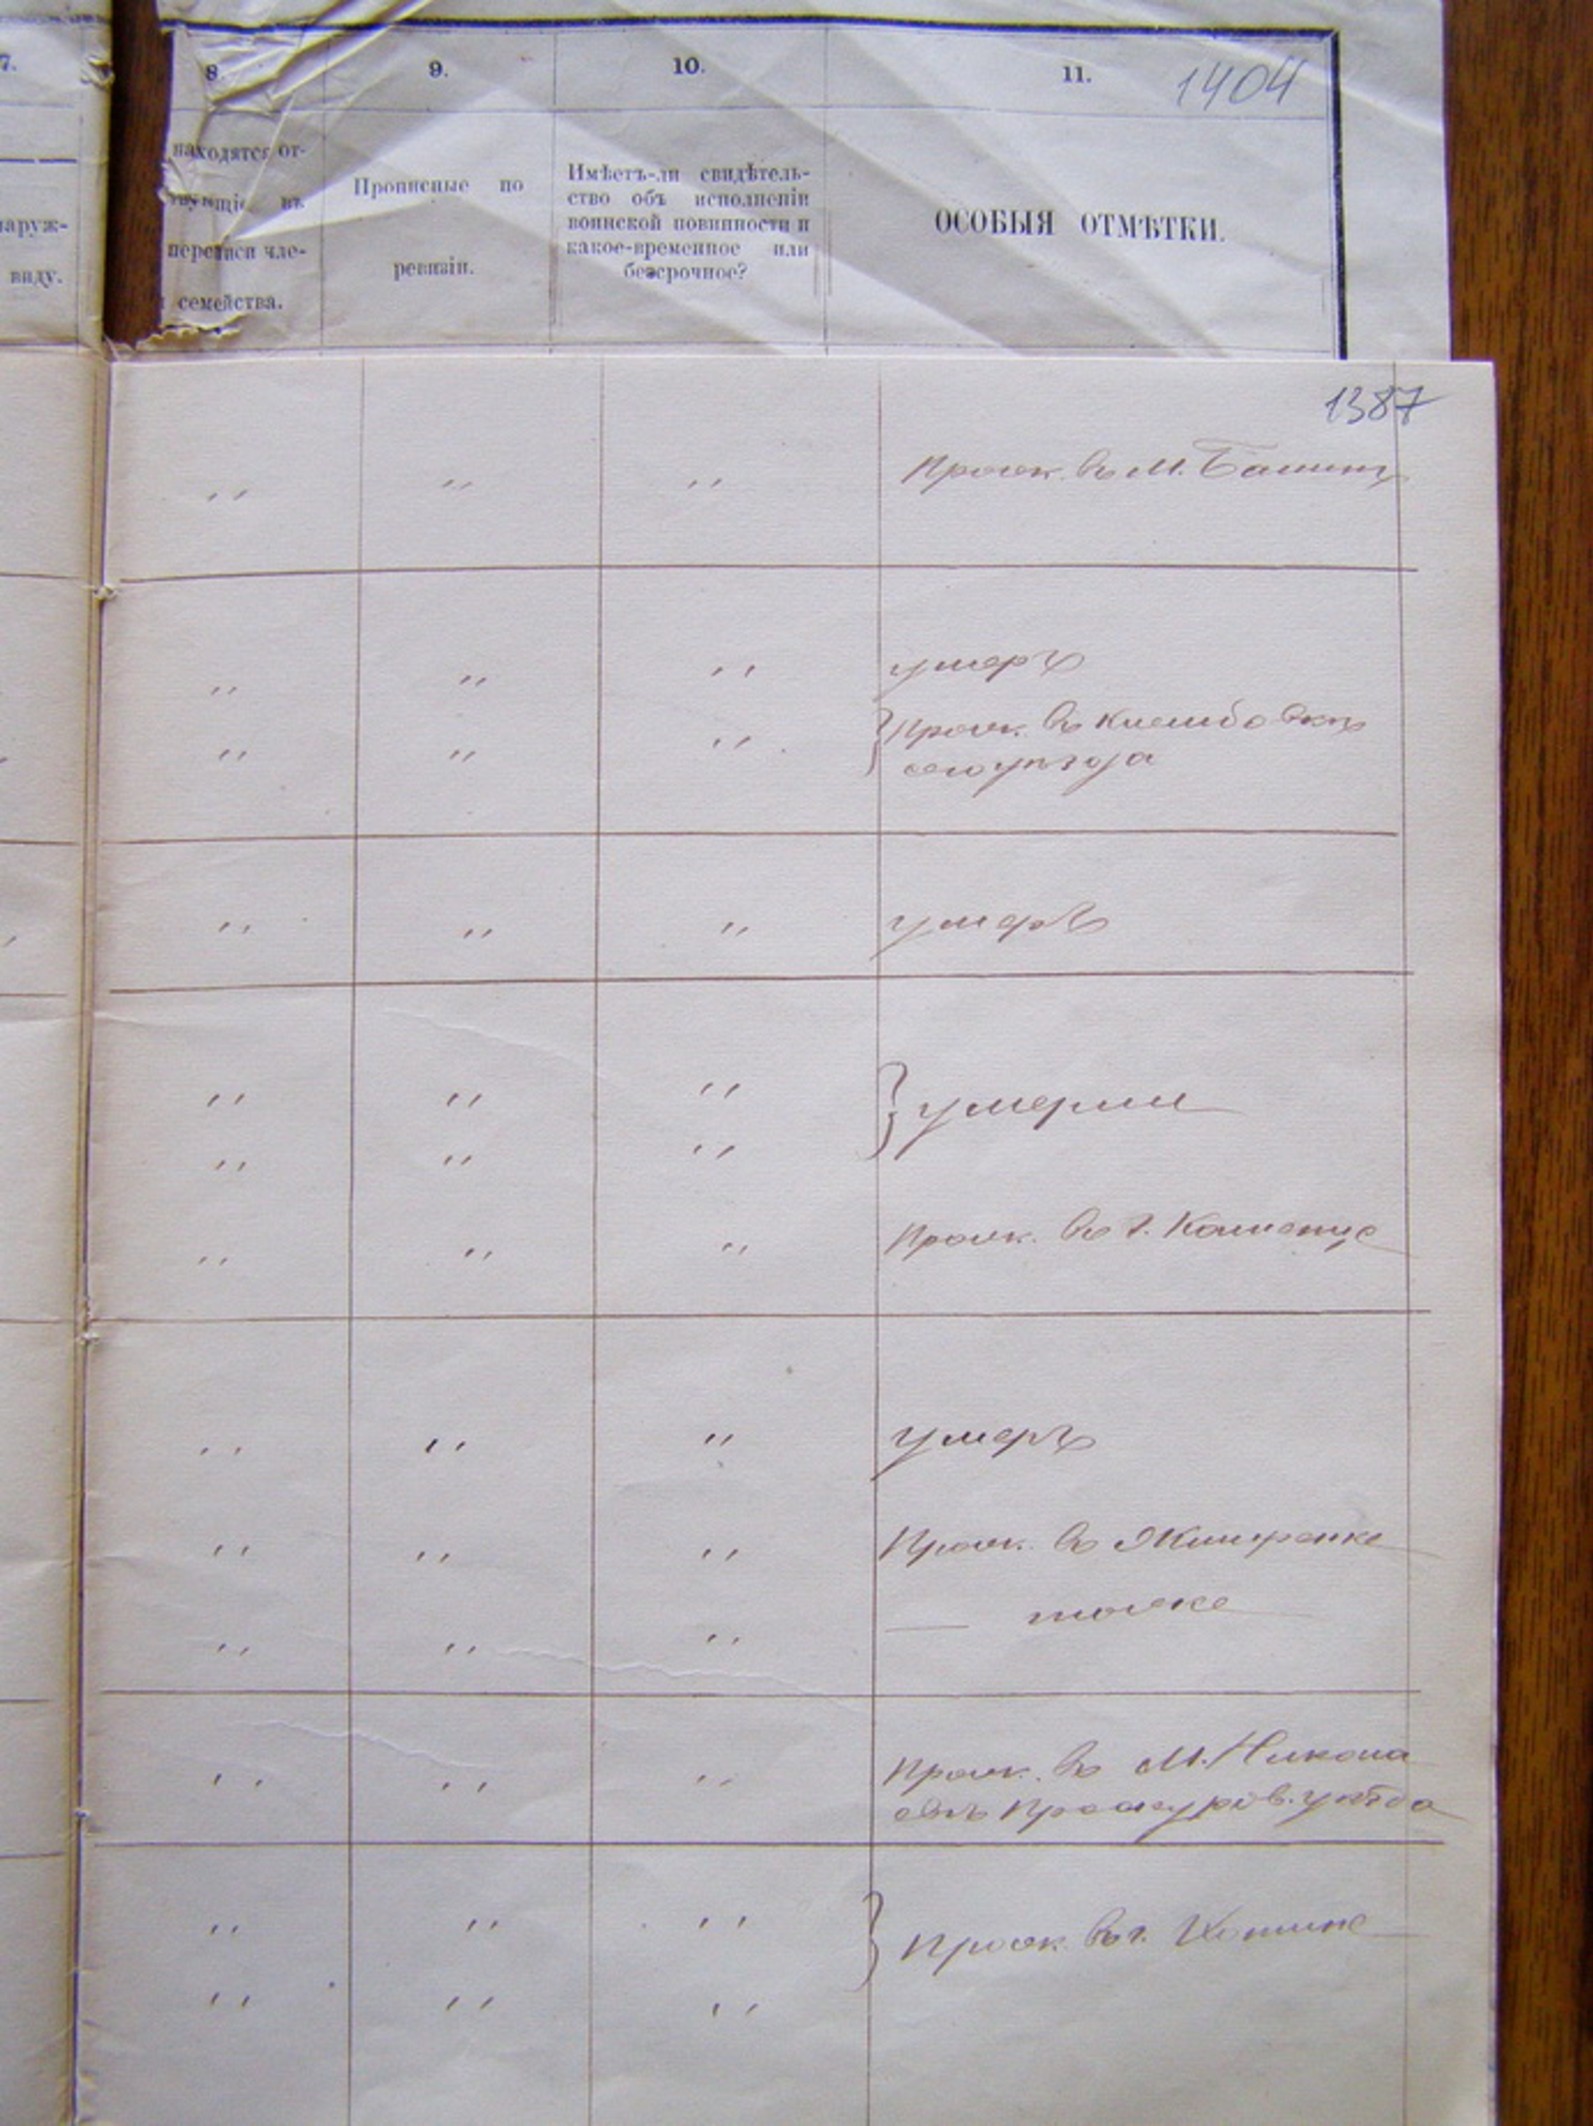 7.
8.
9.
10.
11.
1404
наруж-
виду.
находятся от-
вующіе въ
переписи чле-
семейства.
Прописные по
ревизіи.
Имѣетъ-ли свидѣтель-
ство объ исполненіи
воинской повинности и
какое-временное или
безсрочное?
ОСОБЫЯ ОТМѢТКИ.
1387
" " " Прож. въ М.
" " " умеръ
" " " Прож. въ
сего уѣзда
" " " умеръ
" " " умерли
" " "
" " " Прож. въ г. Каменце
" " " умеръ
" " " Прож. въ
" " " — тоже
" " " Прож. въ М. Никола
евѣ Проскуров. уѣзда
" " " Прож. въ г. Хотине
" " "